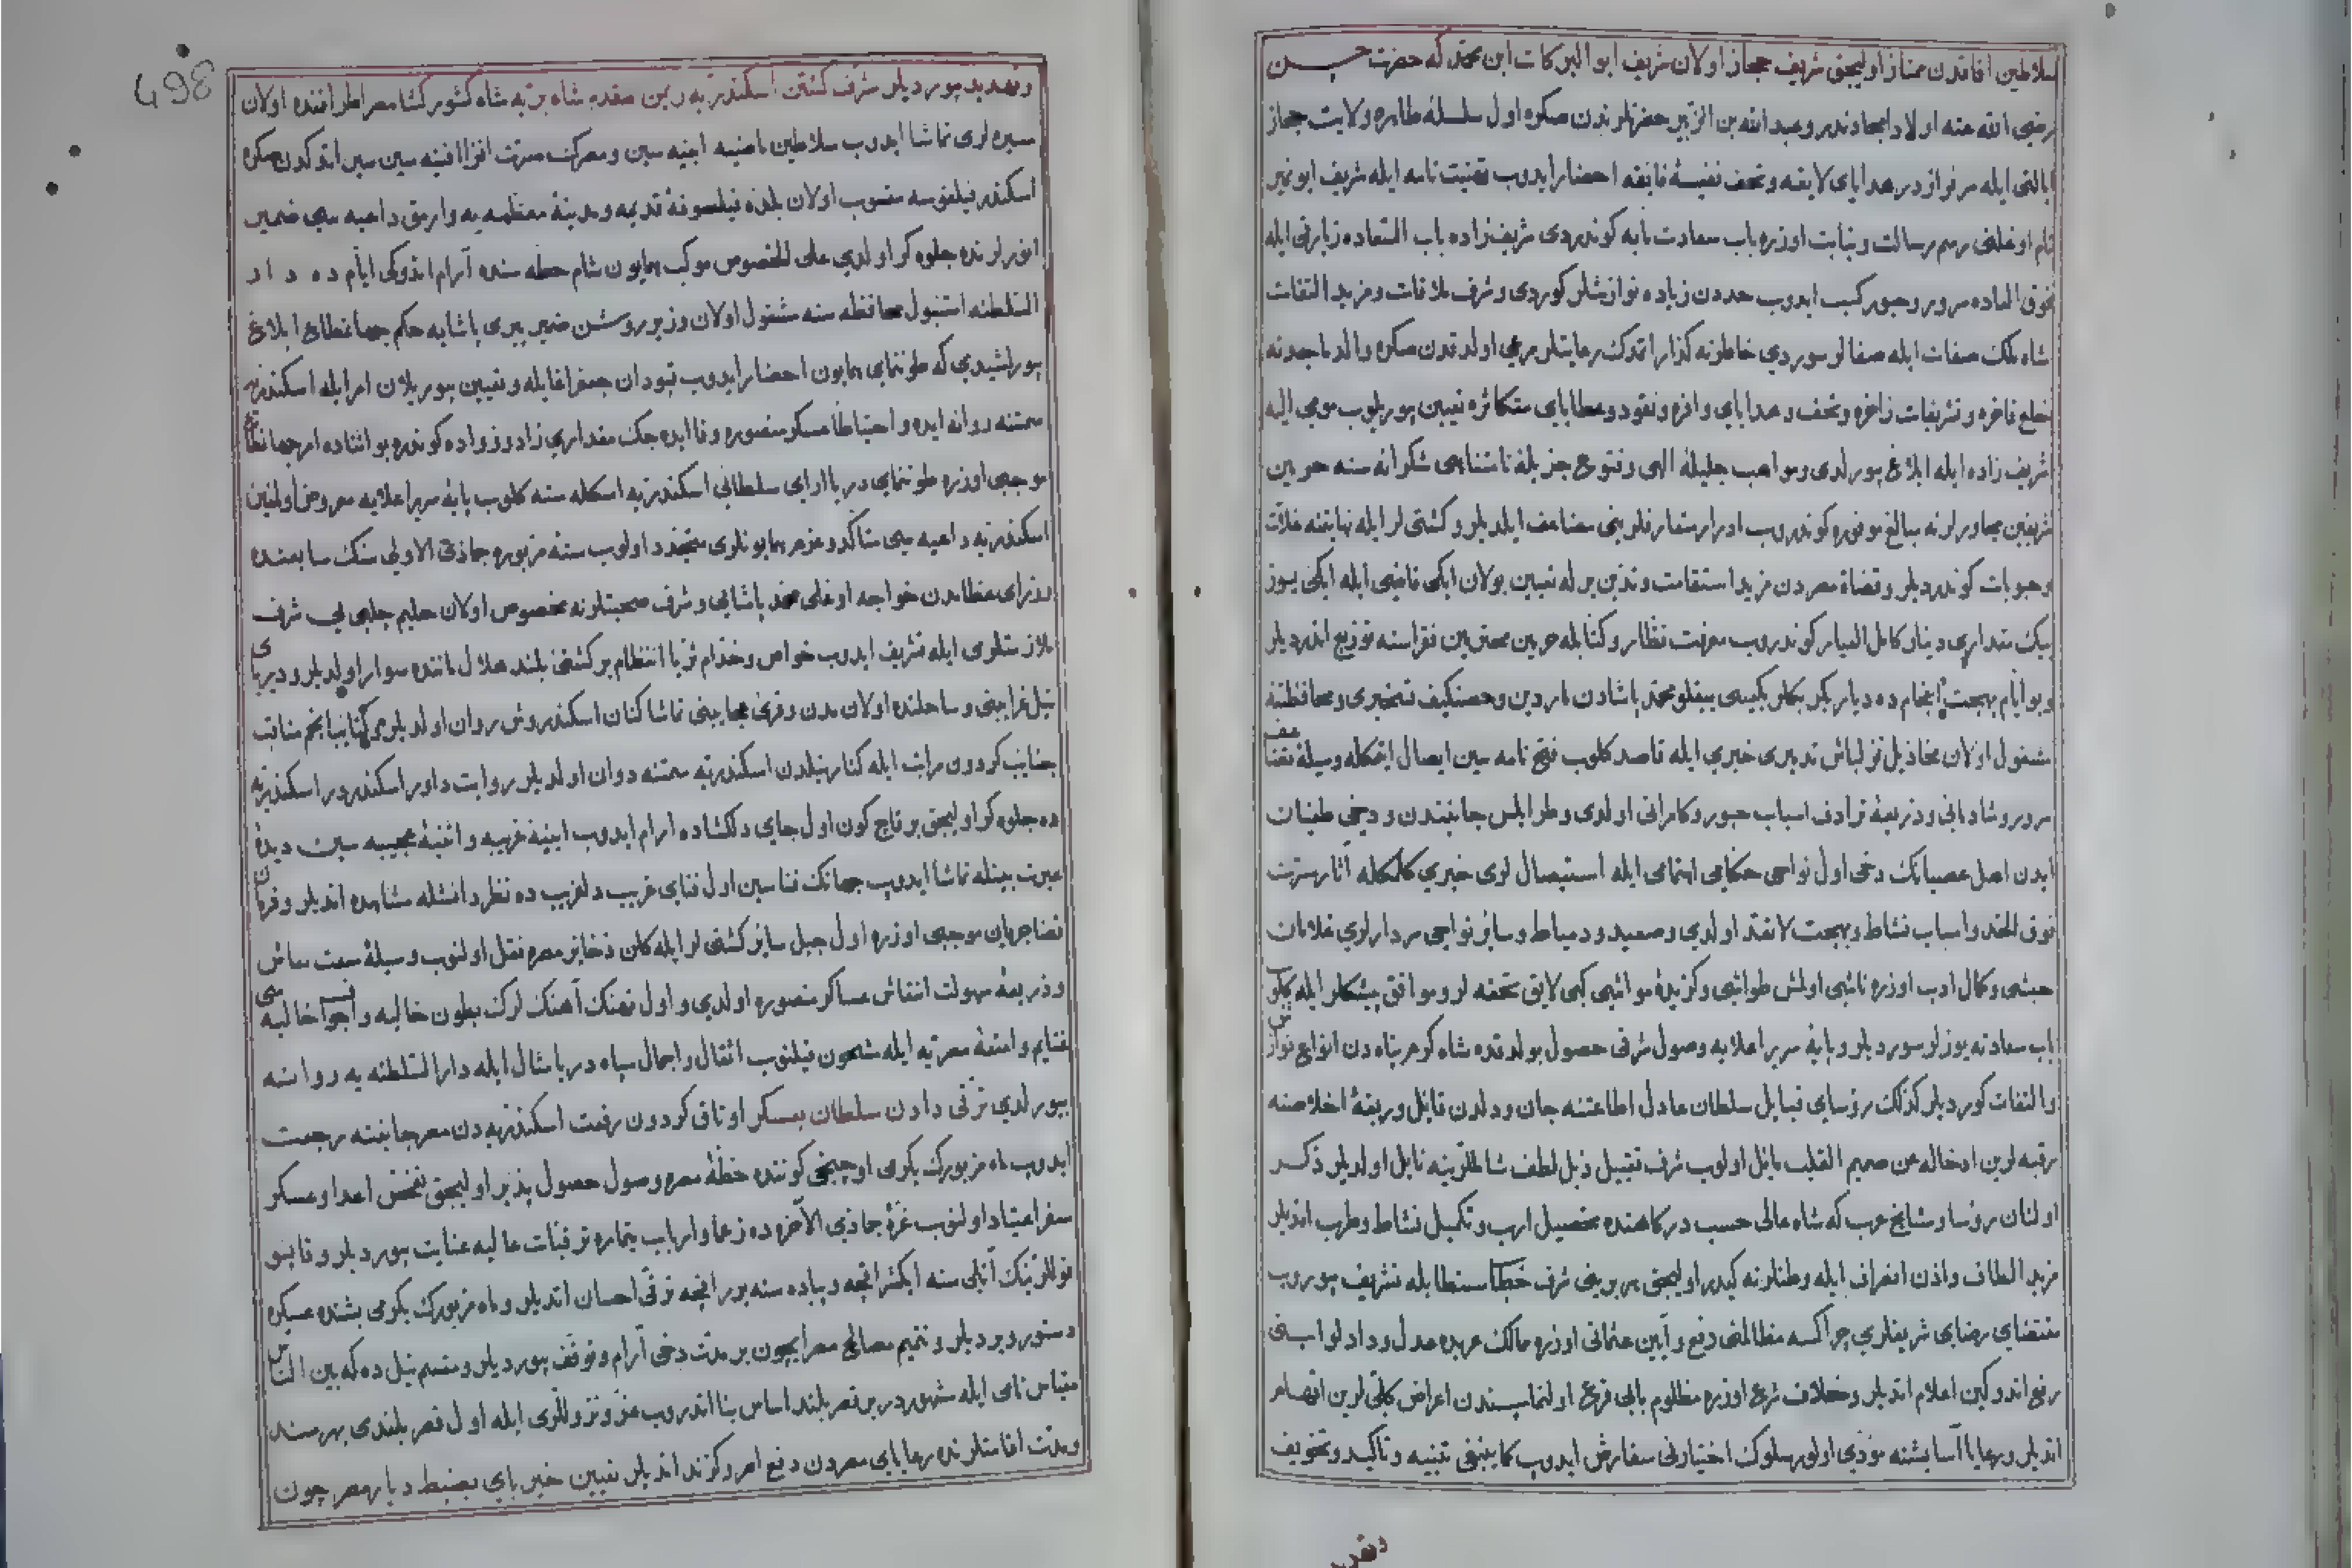 سلاطین آفاقدن ممتاز اولیجق شریف حجاز اولان شریف ابو البرکات ابن محمد که حضرت حسن
رضی الله عنه اولاد امجادندر وعبد الله بن الزبیر حضرتلرندن صکره اول سلسلهٔ طاهره ولایت حجاز
ایالتی ایله سرفرازدر هدایای لایقه وتحف نفیسهٔ فایقه احضار ایدوب تهنیت نامه ایله شریف ابو نمیر
نام اوغلنی رسم رسالت ونیابت اوزره باب سعادت مآبه کوندردی شریف زاده باب السعاده زیارتی ایله
فوق العاده سرور وحبور کسب ایدوب حددن زیاده نوازشلر کوردی وشرف ملاقات ومزید التفات
شاه ملک صفات ایله صفالر سوردی خاطرنه کذار اتدک رعایتلر مرعی اولدقدن صکره والد ماجدنه
خلع فاخره وتشریفات زاخره وتحف وهدایای وافره ونقود وعطایای متکاثره تعیین بیوریلوب مومی الیه
شریف زاده ایله ابلاغ بیورلدی ومواهب جلیلهٔ الهی وفتوح جزیلهٔ نامتناهی شکرانه سنه حرمین
شریفین مجاورلرنه مبالغ موفوره کوندروب ادرار متعارفلرینی مضاعف ایلدیلر وکشتی لر ایله نهایتسه غلات
وحبوبات کوندردیلر وقضاة مصردن مزید استقامت وتدین برله تعیین بولان ایکی قاضی ایله ایکی یوز
بیک مقداری دینار کامل العیار کوندروب معرفت نظار وکتابله حرمین محترمین فقراسنه توزیع اتدردیلر
وبو ایام بهجت انجام ده دیار بکر بکلربکیسی بیقلو محمد پاشادن ماردین وحصنکیف تسخیری ومحافظتنه
مشغول اولان مخاذیل قزلباش تدمیری خبری ایله قاصد کلوب فتح نامه سین ایصال ایتمکله وسیلهٔ تضاعف
سرور وشادمانی وذریعهٔ ترادف اسباب حبور وکامرانی اولدی وطرابلس جانبندن ودخی طغیان
ایدن اهل عصیانک دخی اول نواحی حکامی اهتمامی ایله استیصال لری خبری کلمکله آثار مسرت
فوق الحد واسباب نشاط وبهجت لا تعد اولدی وصعید ودمیاط وسایر نواحی سردارلری غلامان
حبشی وکمال ادب اوزره ناشی اولمش طواشی وکزیدهٔ مواشی کبی لایق تحفه لر وموافق پیشکشلر ایله کلوب
باب سعادته یوزلر سوردیلر وپایهٔ سریر اعلایه وصول شرفی حصول بولدقده شاه کوهر پناه دن انواع نوازش
والتفات کوردیلر کذلک رؤسای قبایل سلطان عادل اطاعتنه جان ودلدن قایل وربقهٔ اخلاصنه
رقبه لرین ادخاله من صمیم القلب مایل اولوب شرف تقبیل ذیل لطف شاملرینه نایل اولدیلر ذکر
اولنان رؤسا ومشایخ عرب که شاه عالی حسب درکاهنده تحصیل ارب وتکمیل نشاط وطرب اتدیلر
مزید الطاف واذن انصراف ایله وطنلرنه کیدر اولیجق هر برینی شرف خطاب مستطابله تشریف بیوروب
مقتضای رضای شریفلری چراکسه مظالمنی دفع وآیین عثمانی اوزره ممالک عربده عدل وداد لواسنی
رفع اتدوکین اعلام اتدیلر وخلاف شرع اوزره مظلوم بابی قرع اولنمامسندن اعراض کلی لرین افهام
اتدیلر ورعایا آسایشنه مؤدی اولور سلوک اختیارنی سفارش ایدوب کما ینبغی تنبیه وتأکید وتخویف
وتهدید
وتهدید بیوردیلر شرف کشتن اسکندریه ز یمن مقدم شاه مرتبه شاه کشور کشا مصر اطرافنده اولان
سیره لری تماشا ایدوب سلاطین ماضیه ابنیه سین ومصرک مسرت افزا افنیه سین سیر اتدکدن صکره
اسکندر فیلقوسه منسوب اولان بلدهٔ فیلسوفهٔ قدیمه ومدینهٔ معظمه یه وارمق داعیه سی ضمیر
انورلرنده جلوه کر اولدی علی الخصوص موکب همایون شام خطه سنده آرام اتدوکی ایام ده دار
السلطنه استنبول محافظه سنه مشغول اولان وزیر روشن ضمیر پیری پاشایه حکم جهانمطاع ابلاغ
بیورلشیدی که طوننمای همایون احضار ایدوب قپودان جعفر اغایله وتعیین بیوریلان امرا ایله اسکندریه
سمتنه روانه ایده واحتیاطا عسکر منصوره وفا ایده جک مقداری زاد وزواده کوندره بو اثناده امر جهانمطاع
موجبی اوزره طوننمای دریا ارای سلطانی اسکندریه اسکله سنه کلوب پایهٔ سریر اعلایه معروض اولنین
اسکندریه داعیه سی متأکد وعزم همایونلری متجدد اولوب سنهٔ مزبوره جماذی الاولی سنک سابعنده
وزرای عظامدن خواجه اوغلی محمد پاشایی وشرف صحبتلرنه مخصوص اولان حلیم چلبی یی شرف
ملازمتلری ایله تشریف ایدوب خواص وخدام ثریا انتظام بر کشتی بلند هلال مانندە سوار اولدیلر ودریای
نیل غرایبنی وساحلنده اولان مدن وقری عجایبنی تماشا کنان اسکندروش روان اولدیلر
جنایب کردون مراتب ایله کنار نیلدن اسکندریه سمتنه دوان اولدیلر روایت داور اسکندر در اسکندریه
ده جلوه کر اولیجق بر قاچ کون اول جای دلکشاده ارام ایدوب ابنیهٔ غریبه وافنیهٔ عجیبه سین دیدهٔ
عبرت بینله تماشا ایدوب جهانک فناسین اول فنای غریب دلفریب ده نظر دانشله مشاهده اتدیلر وفرمان
قضا جریان موجبی اوزره اول جبل سایر کشتی لر ایله کلن ذخایر مصره نقل اولنوب وسیلهٔ سعت معاش
وذریعهٔ سهولت انتعاش عساکر منصوره اولدی واول نهنک آهنک لرک بطون خالیه واجواف خالیه سی
غنایم وامتعهٔ مصریه ایله مشحون قیلنوب اثقال واحمال سپاه دریا مثال ایله دار السلطنه یه روانه
بیورلدی ترقی دادن سلطان بعسکر اوتاق کردون رفعت اسکندریه دن مصر جانبنه رجعت
ایدوب ماه مزبورک یکرمی اوچینجی کوننده خطهٔ مصره وصول حصول پذیر اولیجق تفحص اعدا وعسکر
سفر اعتیاد اولنوب غرهٔ جماذی الآخره ده زعما وارباب تیماره ترقیات عالیه عنایت بیوردیلر وقاپو
قوللرینک آتلی سنه ایکشر اقچه وپیاده سنه برر اقچه ترقی احسان اتدیلر وماه مزبورک یکرمی بشنده عسکره
دستور ویردیلر وتتمیم مصالح مصر ایچون بر مدت دخی آرام وتوقف بیوردیلر ومقسم نیل ده که بین الناس
مقیاس نامی ایله مشهوردر بر قصر بلند اساس بنا اتدروب عز ونزوللری ایله اول قصر بلندی بهره مند
ومدت اقامتلرنده رعایای مصردن دفع امر وکزند اتدیلر تعیین خیر بای بضبط دیار مصر چون
498